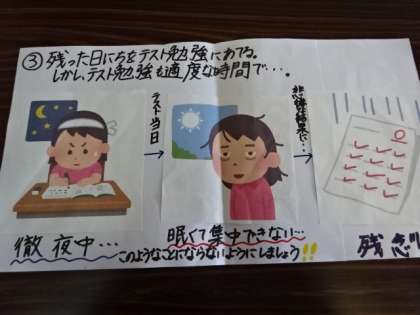 ③ 残った日にちをテスト勉強にあてる。
しかし、テスト勉強も適度な時間で…。
テスト当日
悲惨な結果に…
徹夜中…
眠くて集中できない…
残念!!
このようなことにならないようにしましょう!!